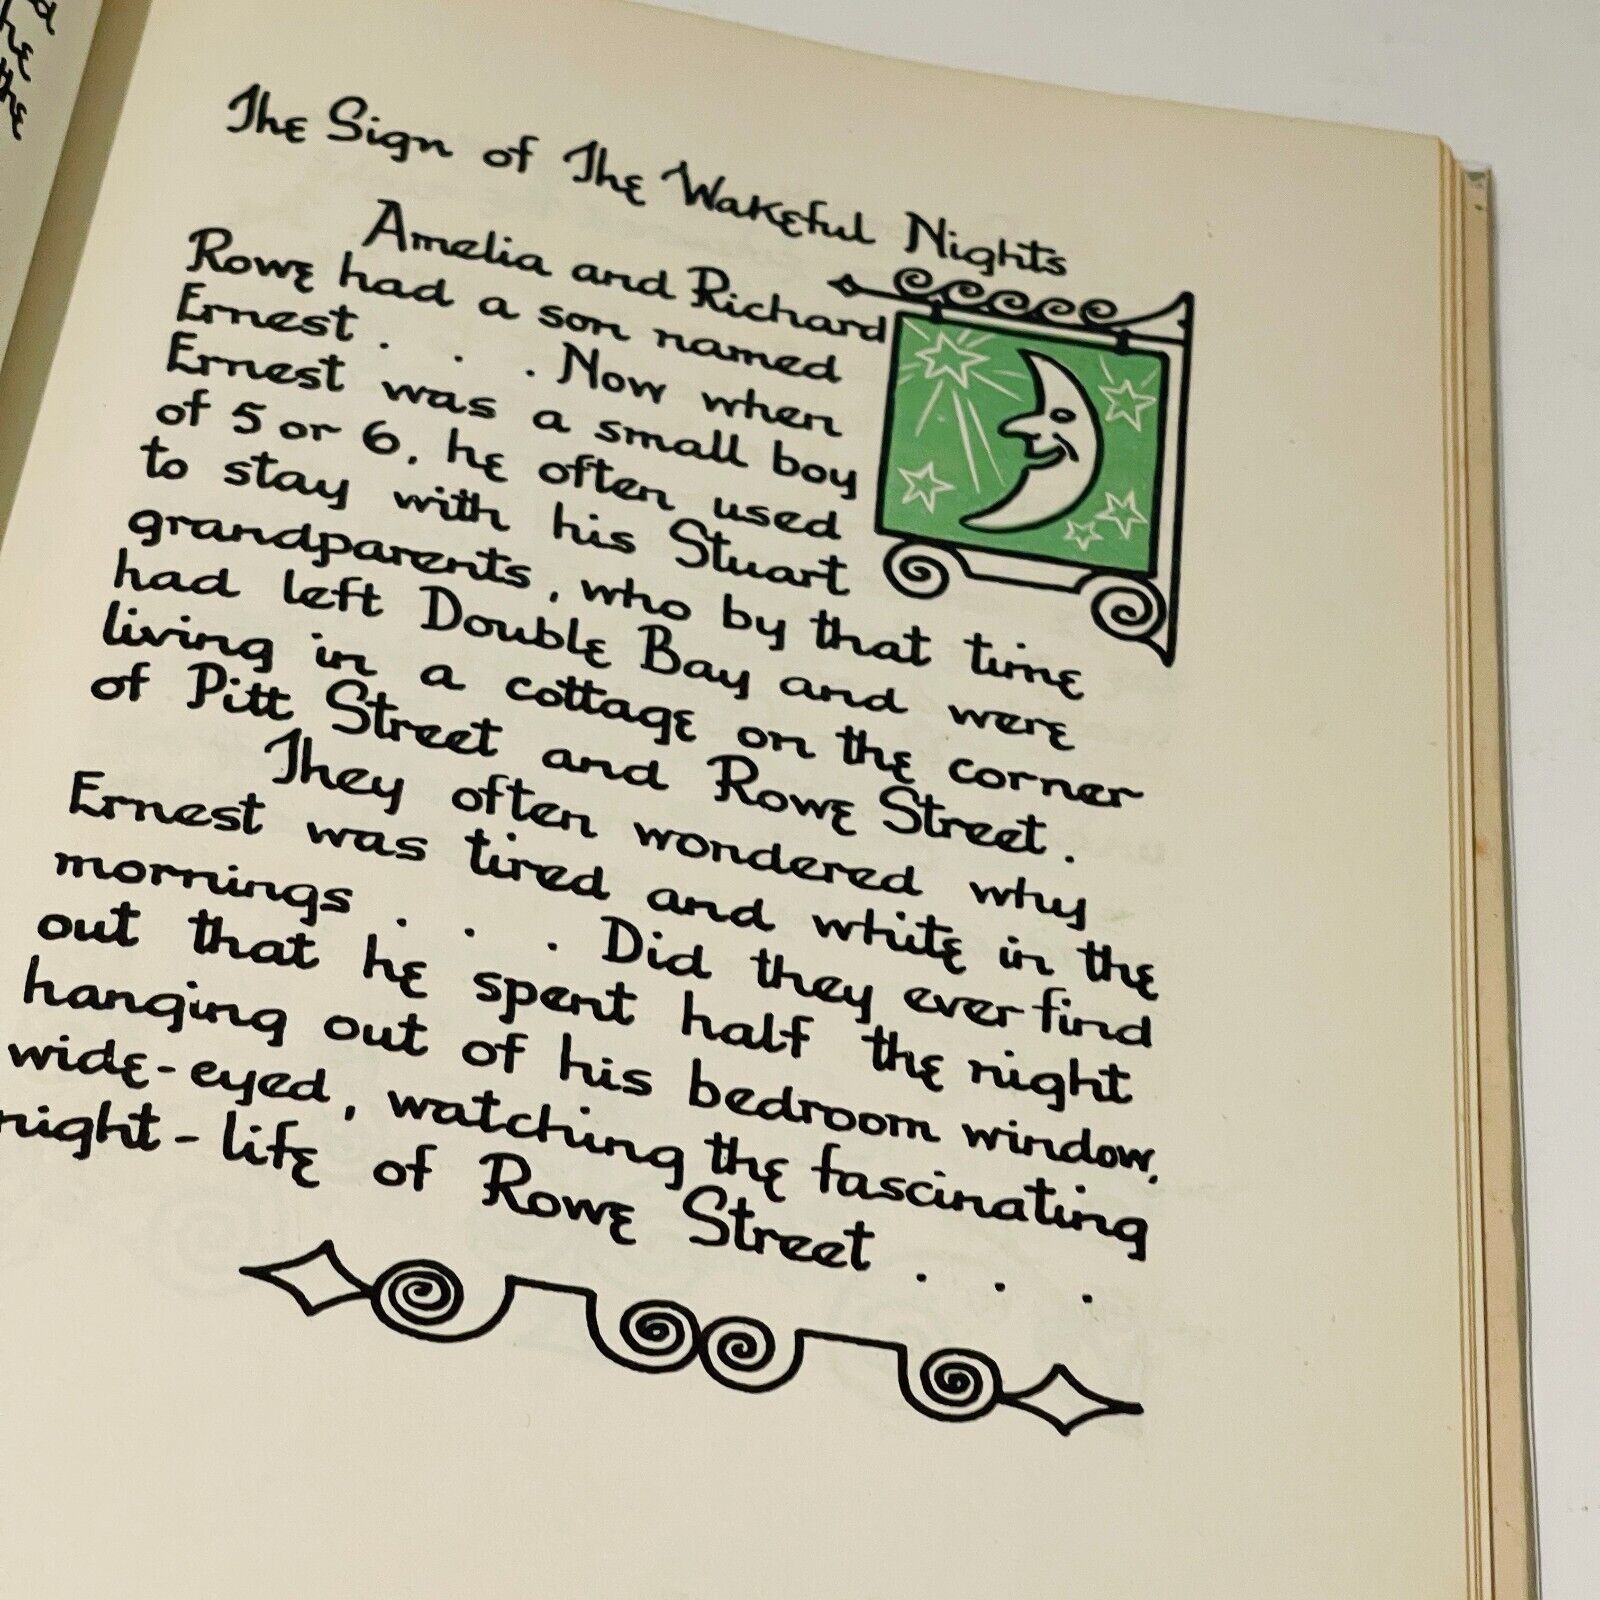 The Sign of The Wakeful Nights
Amelia and Richard
Rowe had a son named
Ernest . . . Now when
Ernest was a small boy
of 5 or 6, he often used
to stay with his Stuart
grandparents, who by that time
had left Double Bay and were
living in a cottage on the corner
of Pitt Street and Rowe Street.
They often wondered why
Ernest was tired and white in the
mornings . . . Did they ever find
out that he spent half the night
hanging out of his bedroom window,
wide-eyed, watching the fascinating
night-life of Rowe Street . . .